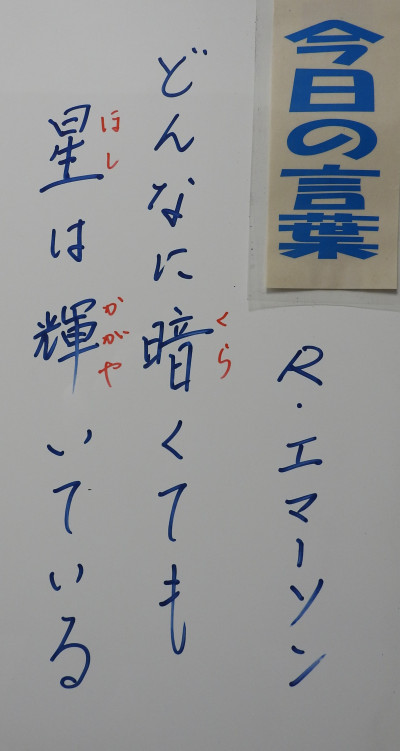 今日の言葉
R・エマーソン
どんなに暗くても
くら
星は輝いている
ほし
かがや